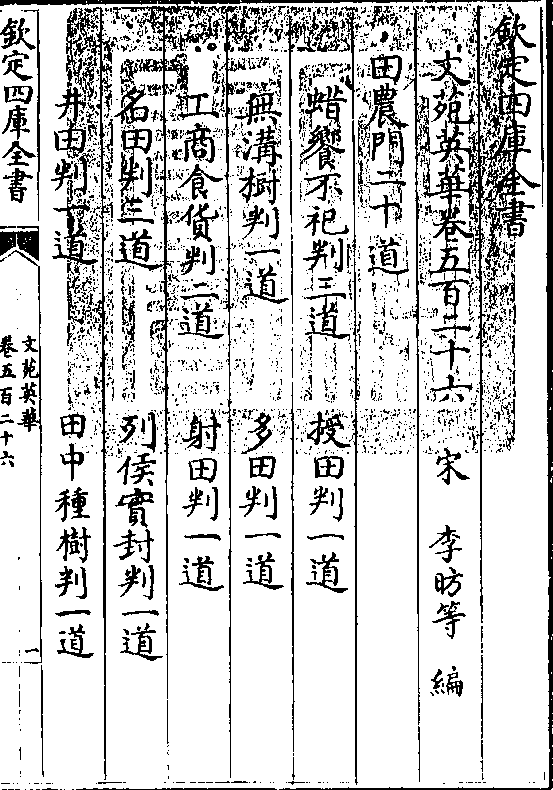 欽定四庫全書
文苑英華卷五百二十六 宋 李昉等 編
田農門二十道
蜡饗不祀判三道 授田判一道
無溝樹判一道 多田判一道
工商食貨判二道 射田判一道
名田判三道 列侯實封判一道
井田判一道 田中種樹判一道
欽定四庫全書
文苑英華
卷五百二十六
一